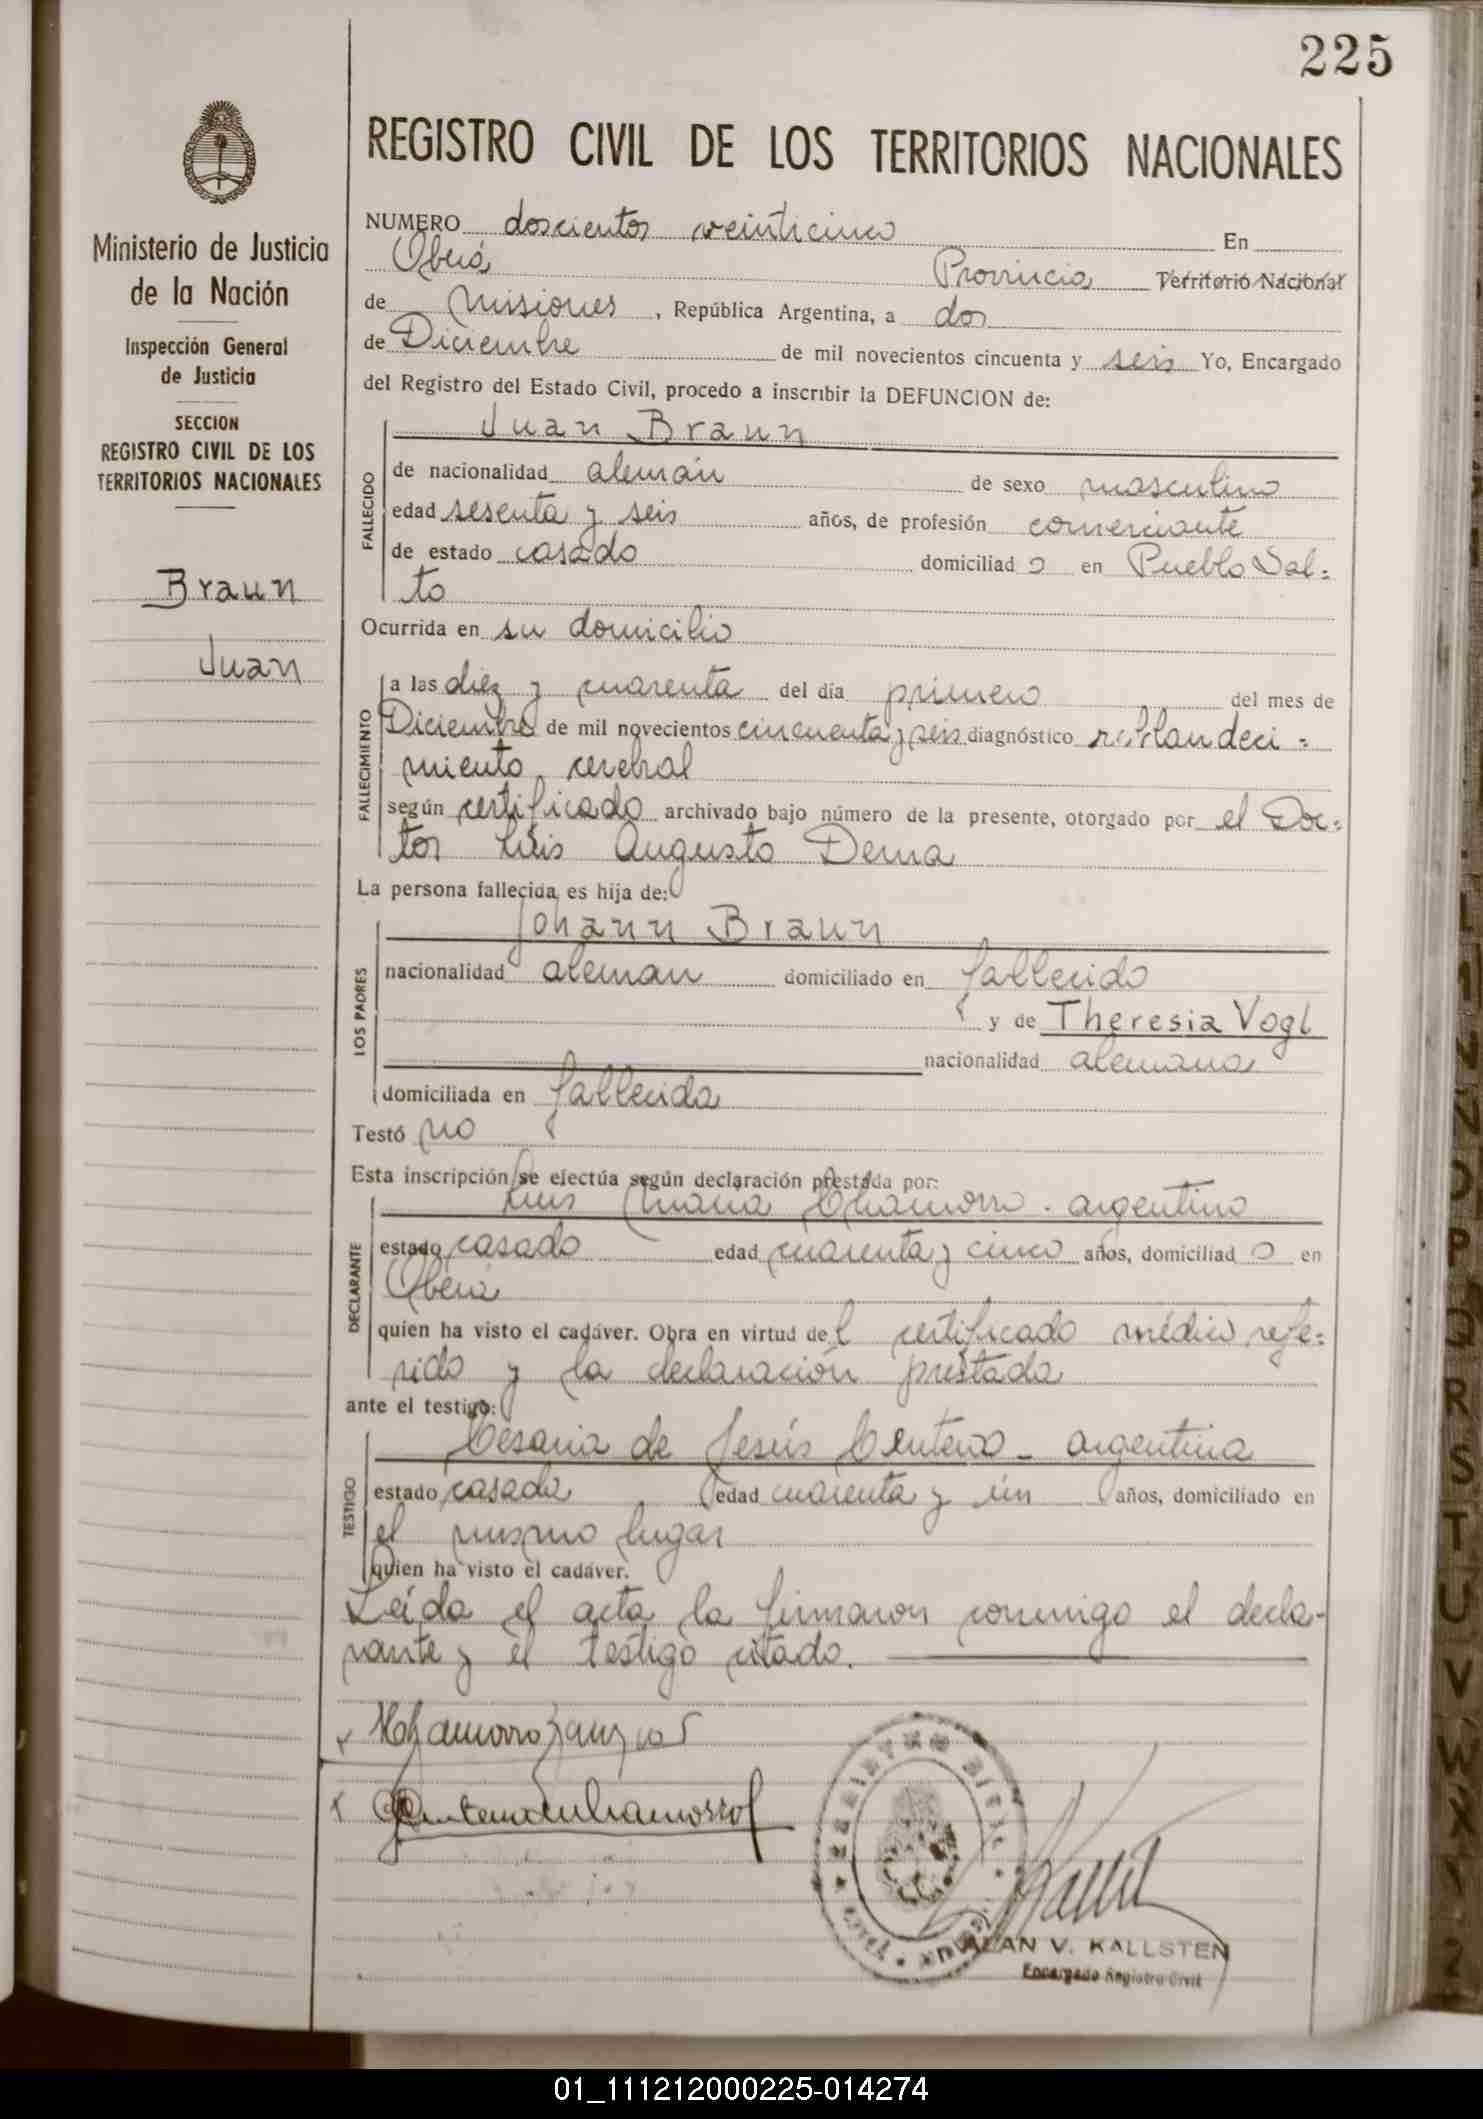 225
Ministerio de Justicia
de la Nación
Inspección General
de Justicia
SECCION
REGISTRO CIVIL DE LOS
TERRITORIOS NACIONALES
Braun
Juan
REGISTRO CIVIL DE LOS TERRITORIOS NACIONALES
NUMERO doscientos veinticinco En
Oberá Provincia Territorio Nacional
de Misiones, República Argentina, a dos
de Diciembre de mil novecientos cincuenta y seis Yo, Encargado
del Registro del Estado Civil, procedo a inscribir la DEFUNCION de:
Juan Braun
FALLECIDO
de nacionalidad alemán de sexo masculino
edad sesenta y seis años, de profesión comerciante
de estado casado domiciliado en Pueblo Sal=
to
Ocurrida en su domicilio
FALLECIMIENTO
a las diez y cuarenta del día primero del mes de
Diciembre de mil novecientos cincuenta y seis diagnóstico reblandeci=
miento cerebral
según certificado archivado bajo número de la presente, otorgado por el Doc=
tor Luis Augusto Derna
La persona fallecida es hija de:
Johann Braun
LOS PADRES
nacionalidad aleman domiciliado en fallecido
y de Theresia Vogl
nacionalidad alemana
domiciliada en fallecida
Testó no
Esta inscripción se efectúa según declaración prestada por:
Luis María Chamorro - argentino
DECLARANTE
estado casado edad cuarenta y cinco años, domiciliado en
Oberá
quien ha visto el cadáver. Obra en virtud del certificado médico refe=
rido y la declaración prestada
ante el testigo:
Cesaria de Jesús Centeno - argentina
TESTIGO
estado casada edad cuarenta y ún años, domiciliado en
el mismo lugar
quien ha visto el cadáver.
Leída el acta la firmaron conmigo el decla-
rante y el testigo citado.
REGISTRO CIVIL
ALAN V. KALLSTEN
Encargado Registro Civil
01_111212000225-014274